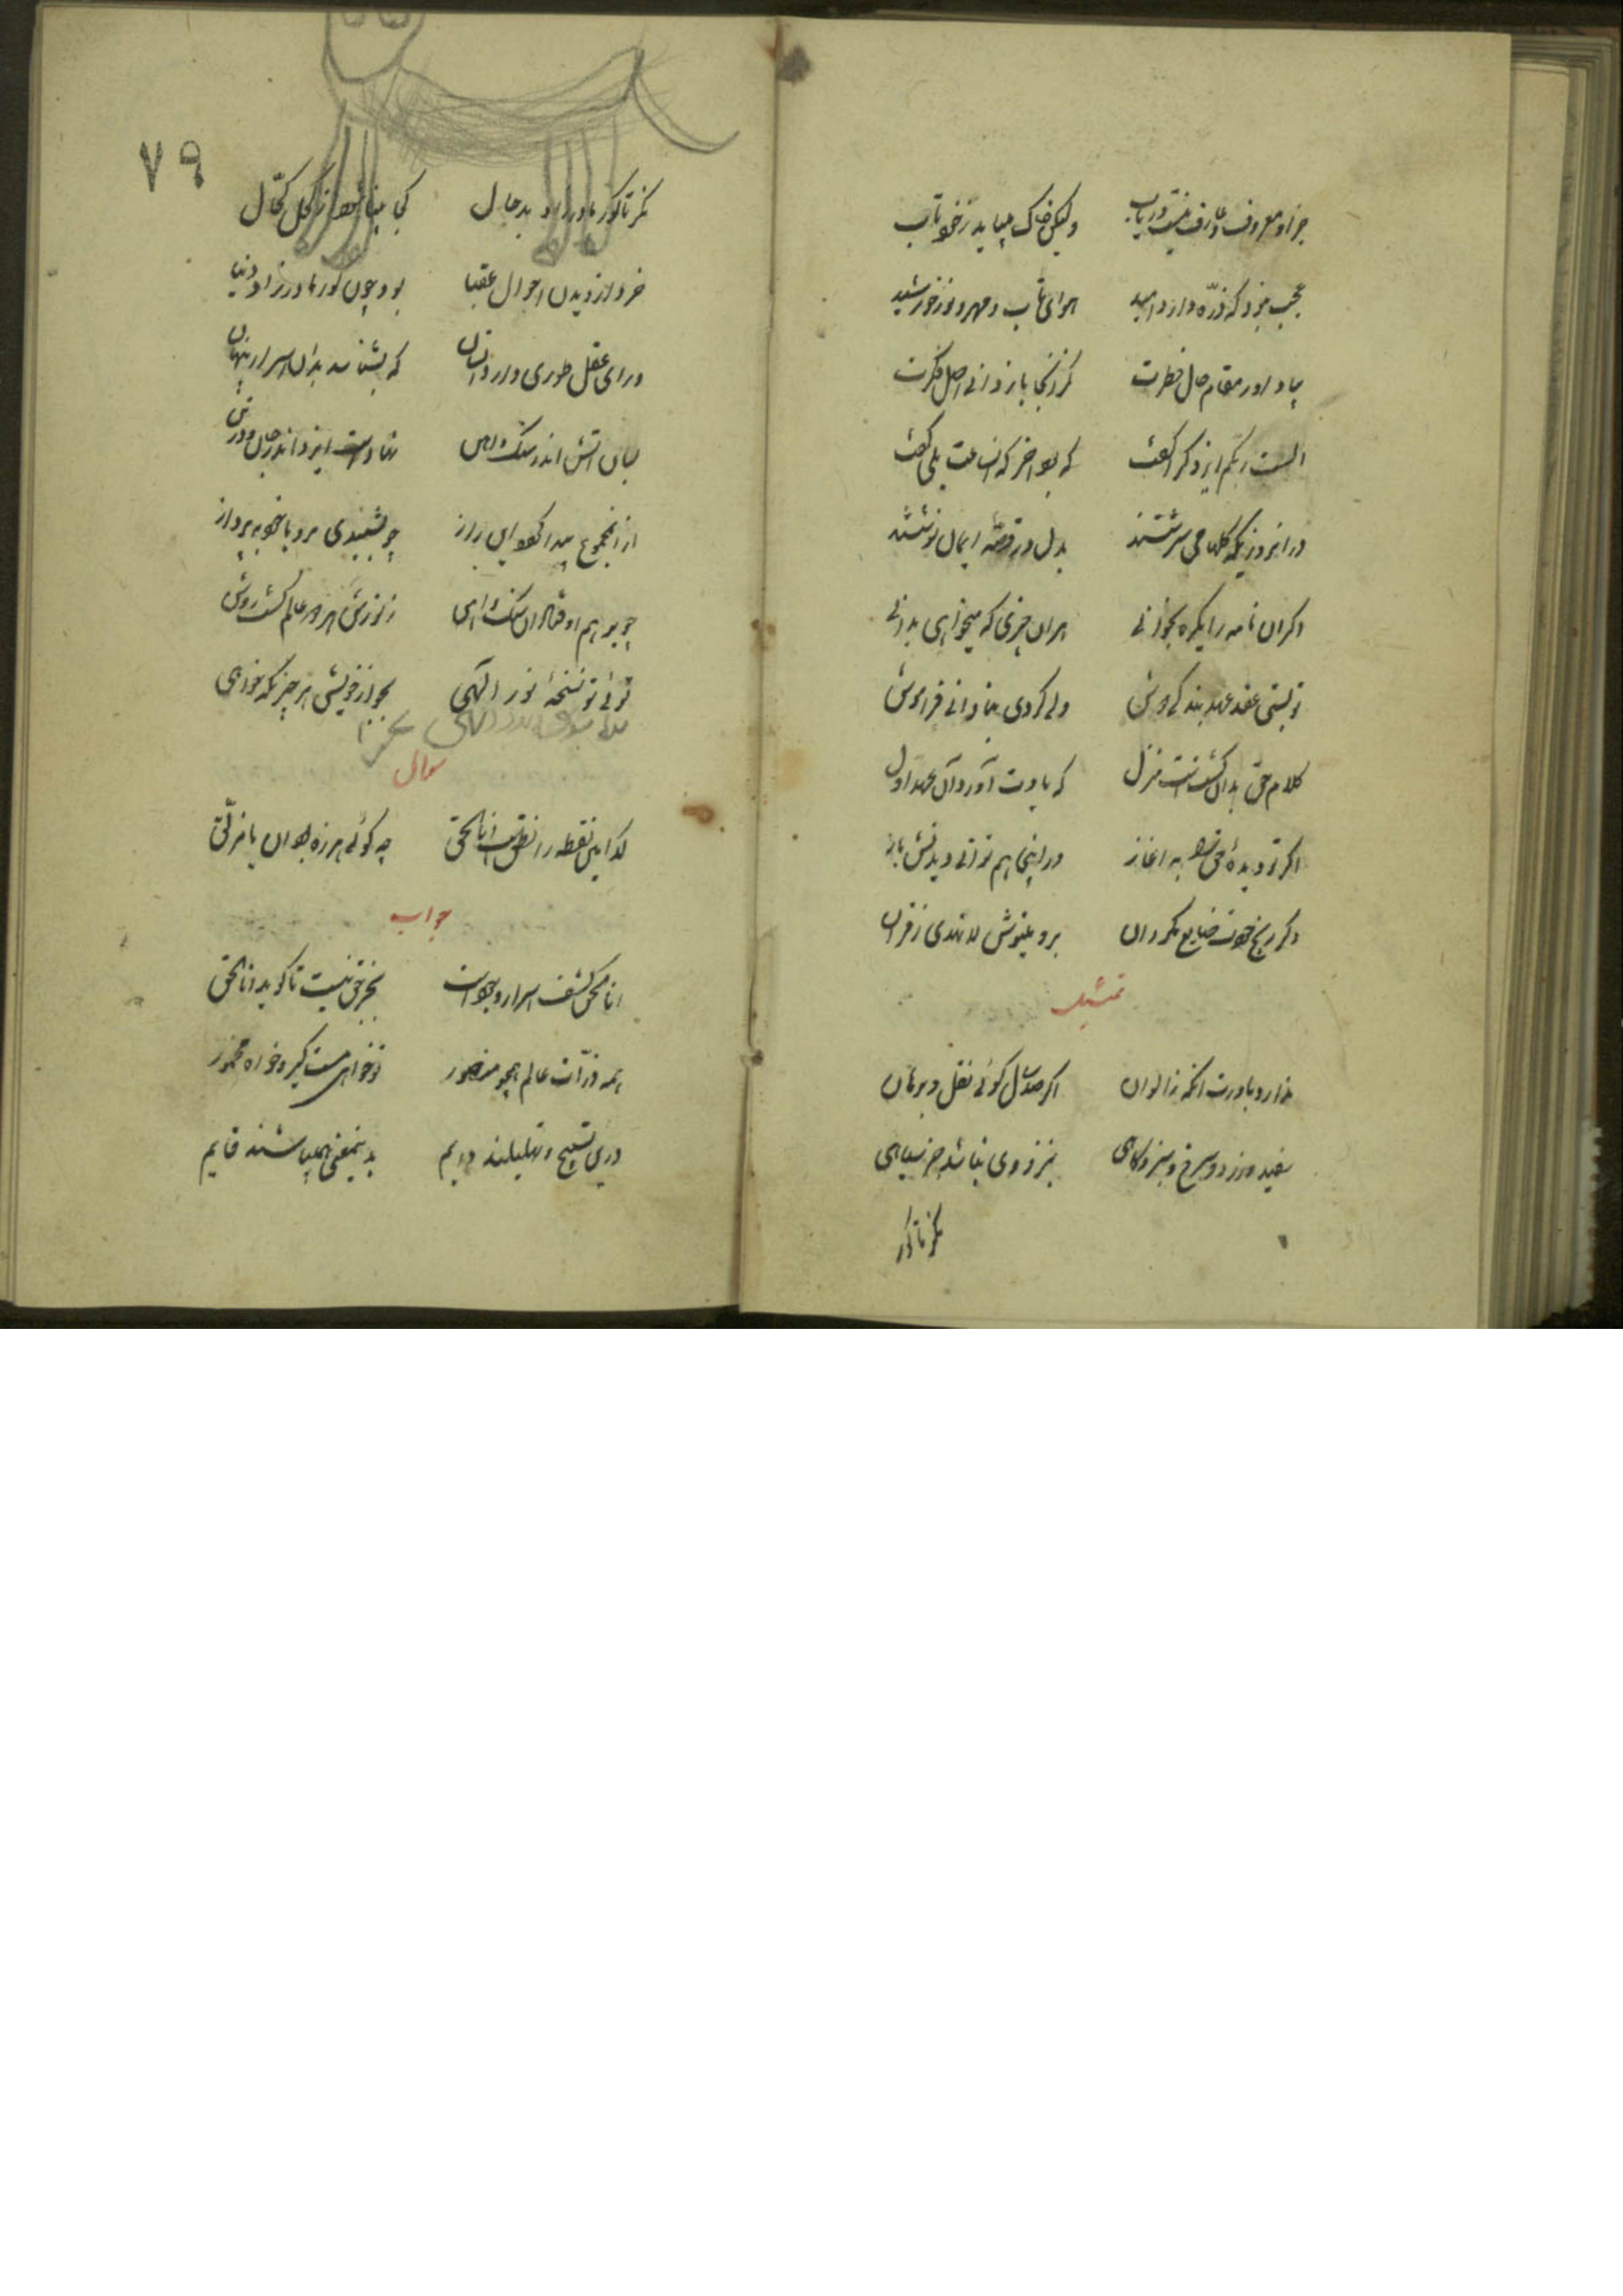 جز او معروف و عارف نیست دریاب ولیکن خاک میباید ز خود تاب
عجب نبود که ذره دارد امید هوای تاب و مهر و نور خورشید
بیاد آور مقام حال فطرت کز آنجا باز دانی اصل فکرت
الست بربکم ایزد کرا گفت که بود آخر که آن ساعت بلی گفت
در آن روزیکه گلها می سرشتند بدل در قصّه ایمان نوشتند
اگر آن نامه را یکره بخوانی هر آن چیزی که میخواهی بدانی
تو بستی عقد عهد بندگی دوش ولی کردی بنادانی فراموش
کلام حق بدان گشتست منزل که یادت آورد آن عهد اول
اگر تو دیده حق را به آغاز در اینجا هم توانی دیدنش باز
تمثیل
ندارد باورت اکمه ز الوان اگر صد سال گوئی نقل و برهان
سفید و زرد و سرخ و سبز و کاهی بنزد وی نباشد جز سیاهی
نگر تا کور
۷۹
نگر تا کور مادرزاد بدحال کجا بینا شود از کحل کحّال
خرد از دیدن احوال عقبا بود چون کور مادرزاد دنیا
ورای عقل طوری دارد انسان که بشناسد بدان اسرار پنهان
بسان آتش اندر سنگ و آهن نهادست ایزد اندر جان و در تن
از آن مجموع پیدا گردد این راز چو بشنیدی برو با خود بپرداز
چو بر هم اوفتاد آن سنگ و آهن ز نورش هر دو عالم گشت روشن
توئی تو نسخهٔ نور الهی بجو از خویش هر چیزیکه خواهی
سوال
کدامین نقطه را نطقست انا الحق چه گوئی هرزه بود آن یا مزلّق
جواب
انا الحق کشف اسرار وجودست بجز حق نیست تا گوید انا الحق
همه ذرّات عالم همچو منصور تو خواهی مست گیر و خواه مخمور
درین تسبیح و تهلیلند دایم بدینمعنی همی باشند قایم